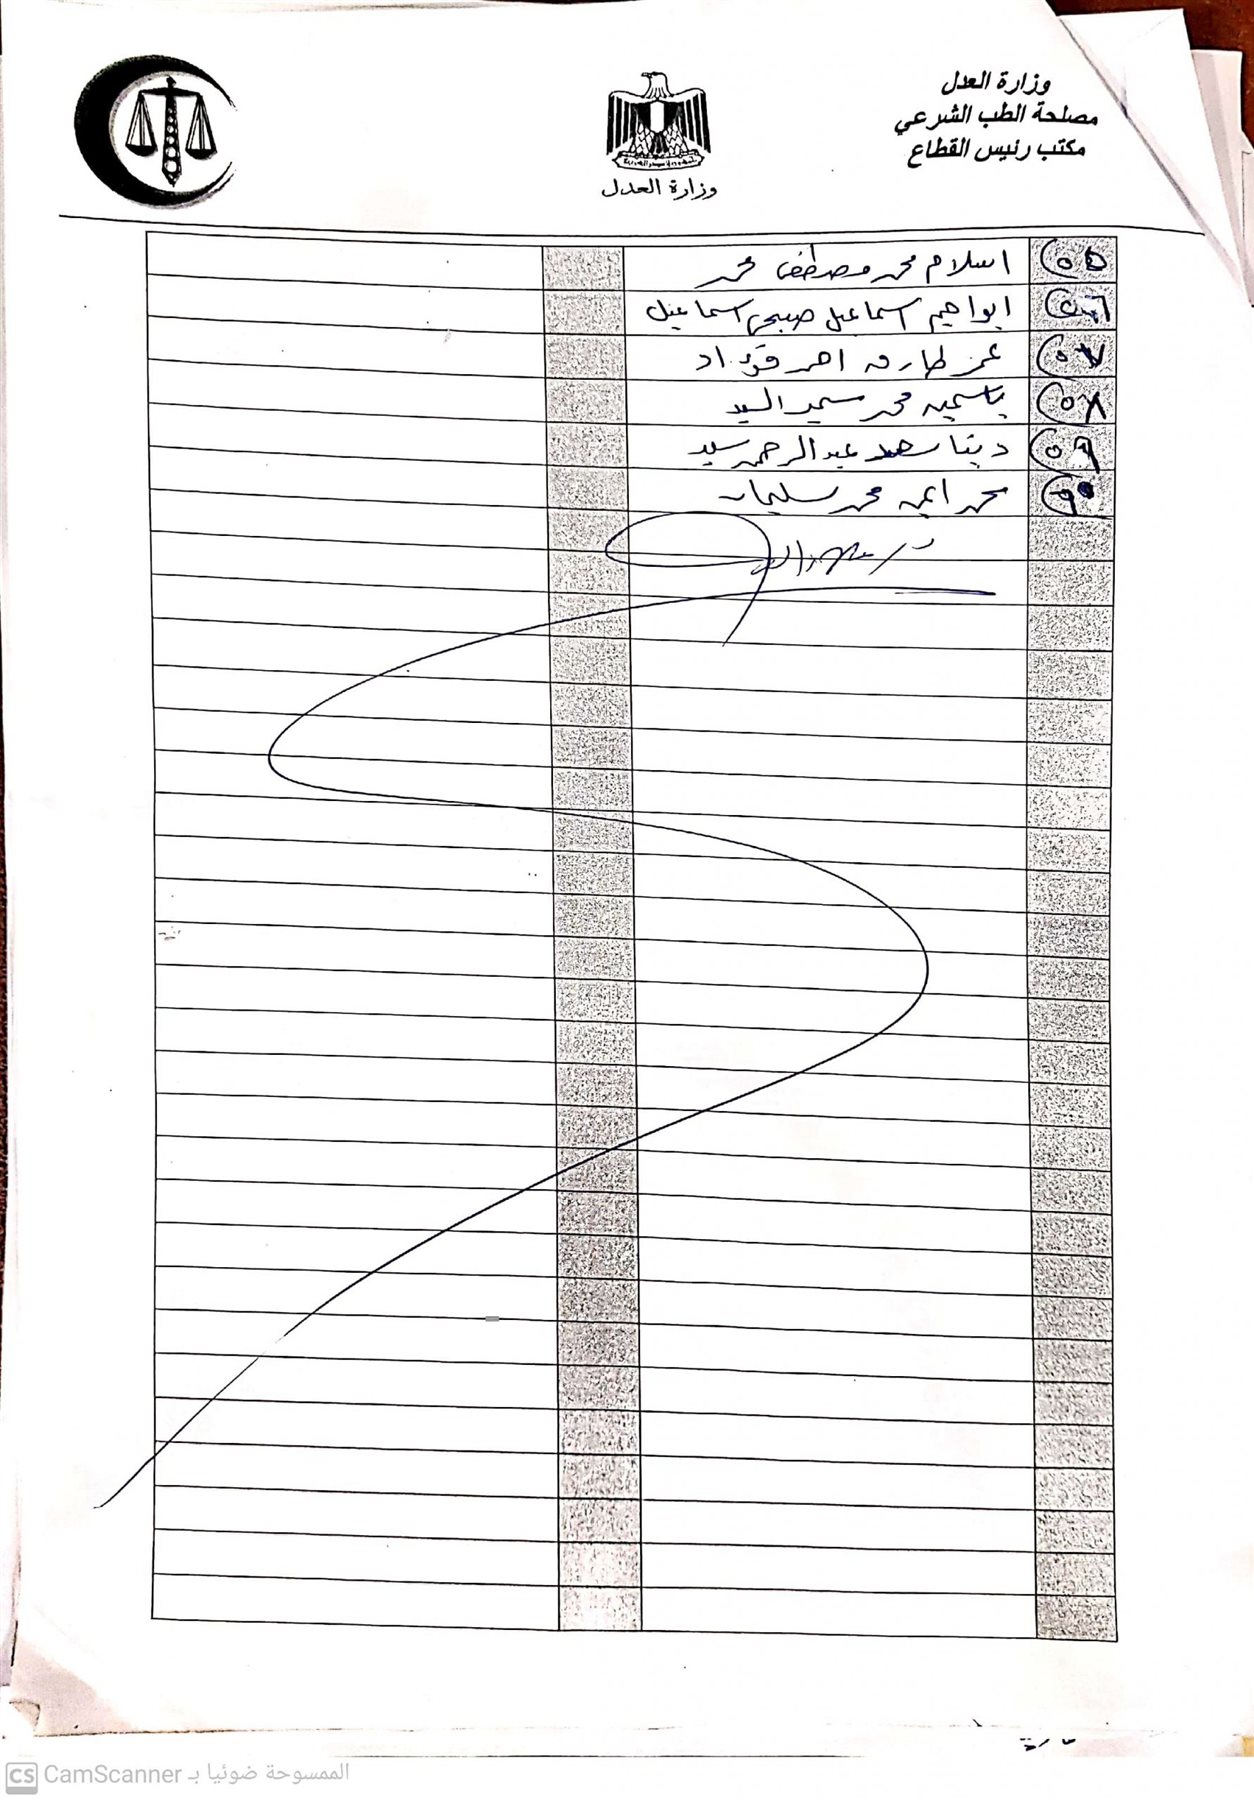 وزارة العدل
مصلحة الطب الشرعي
مكتب رئيس القطاع
وزارة العدل
٥٥ اسلام محمد مصطفى محمد
٥٦ ابراهيم اسماعيل صبحى اسماعيل
٥٧ عمر طارق احمد فؤاد
٥٨ ياسمين محمد سمير السيد
٥٩ دينا سعد عبدالرحمن سيد
٦٠ محمد ايمن محمد سليمان
CS CamScanner الممسوحة ضوئيا بـ